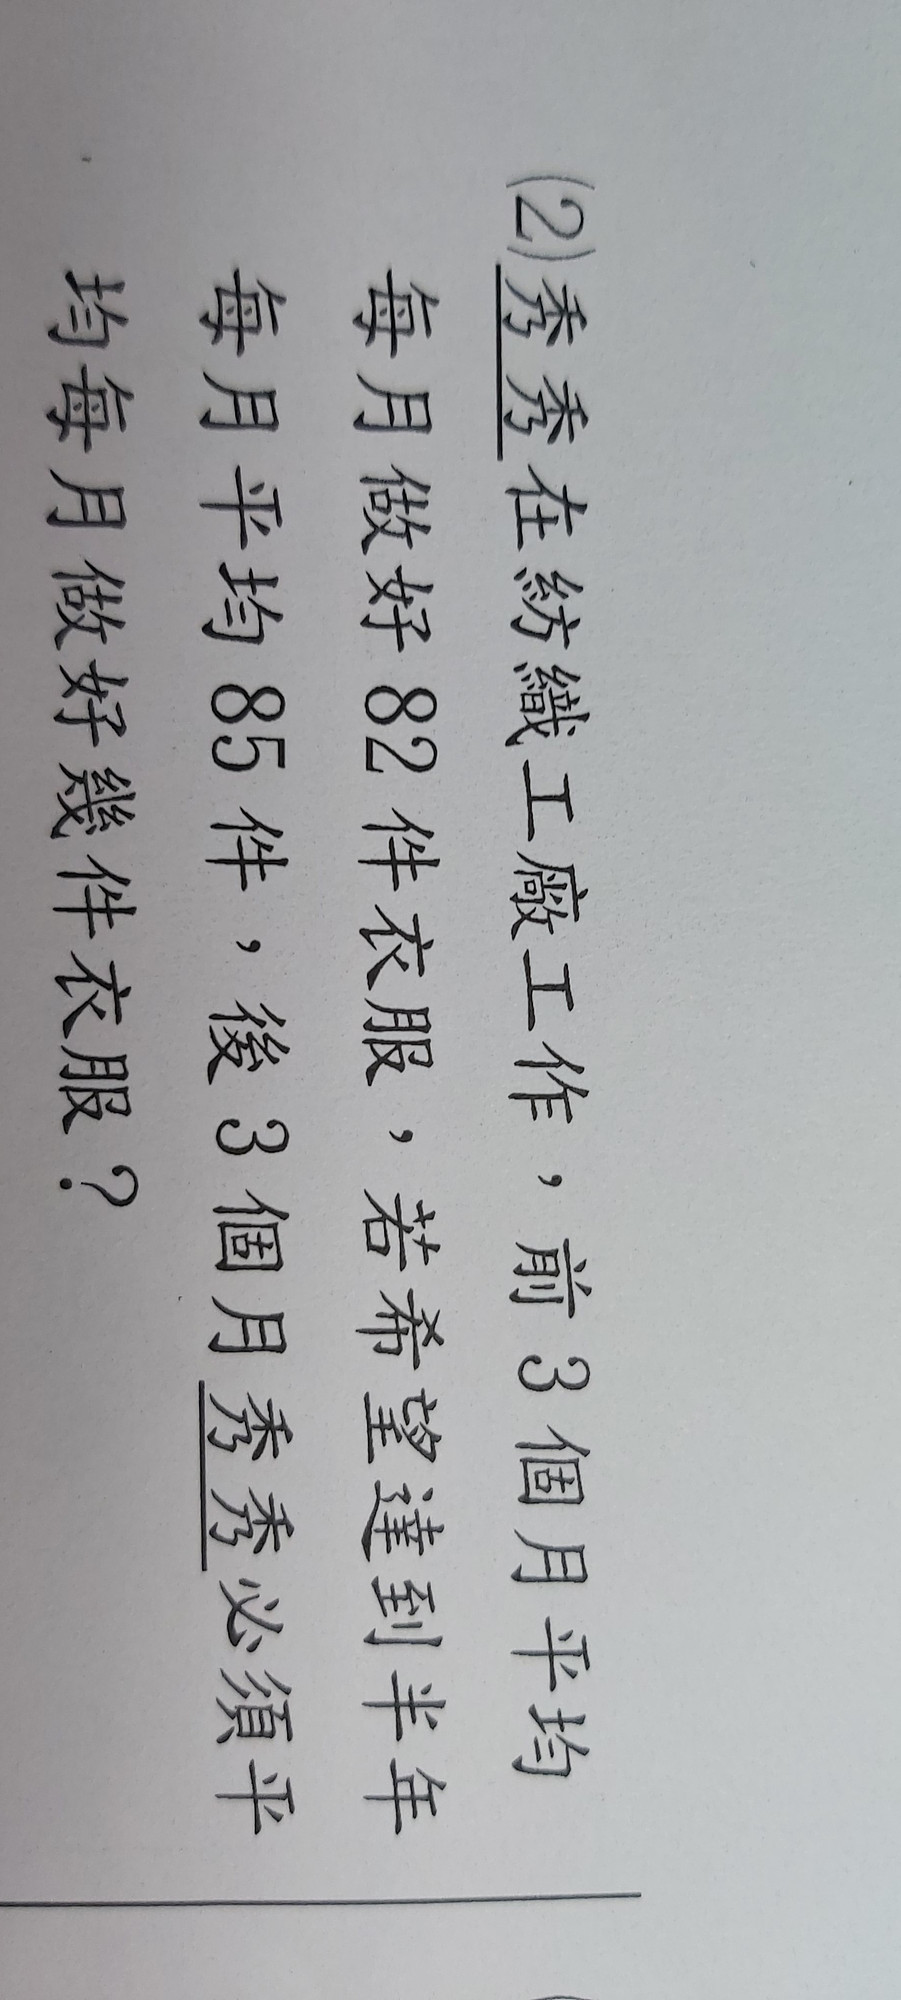 (2)秀秀在紡織工廠工作，前3個月平均
每月做好82件衣服，若希望達到半年
每月平均85件，後3個月秀秀必須平
均每月做好幾件衣服？